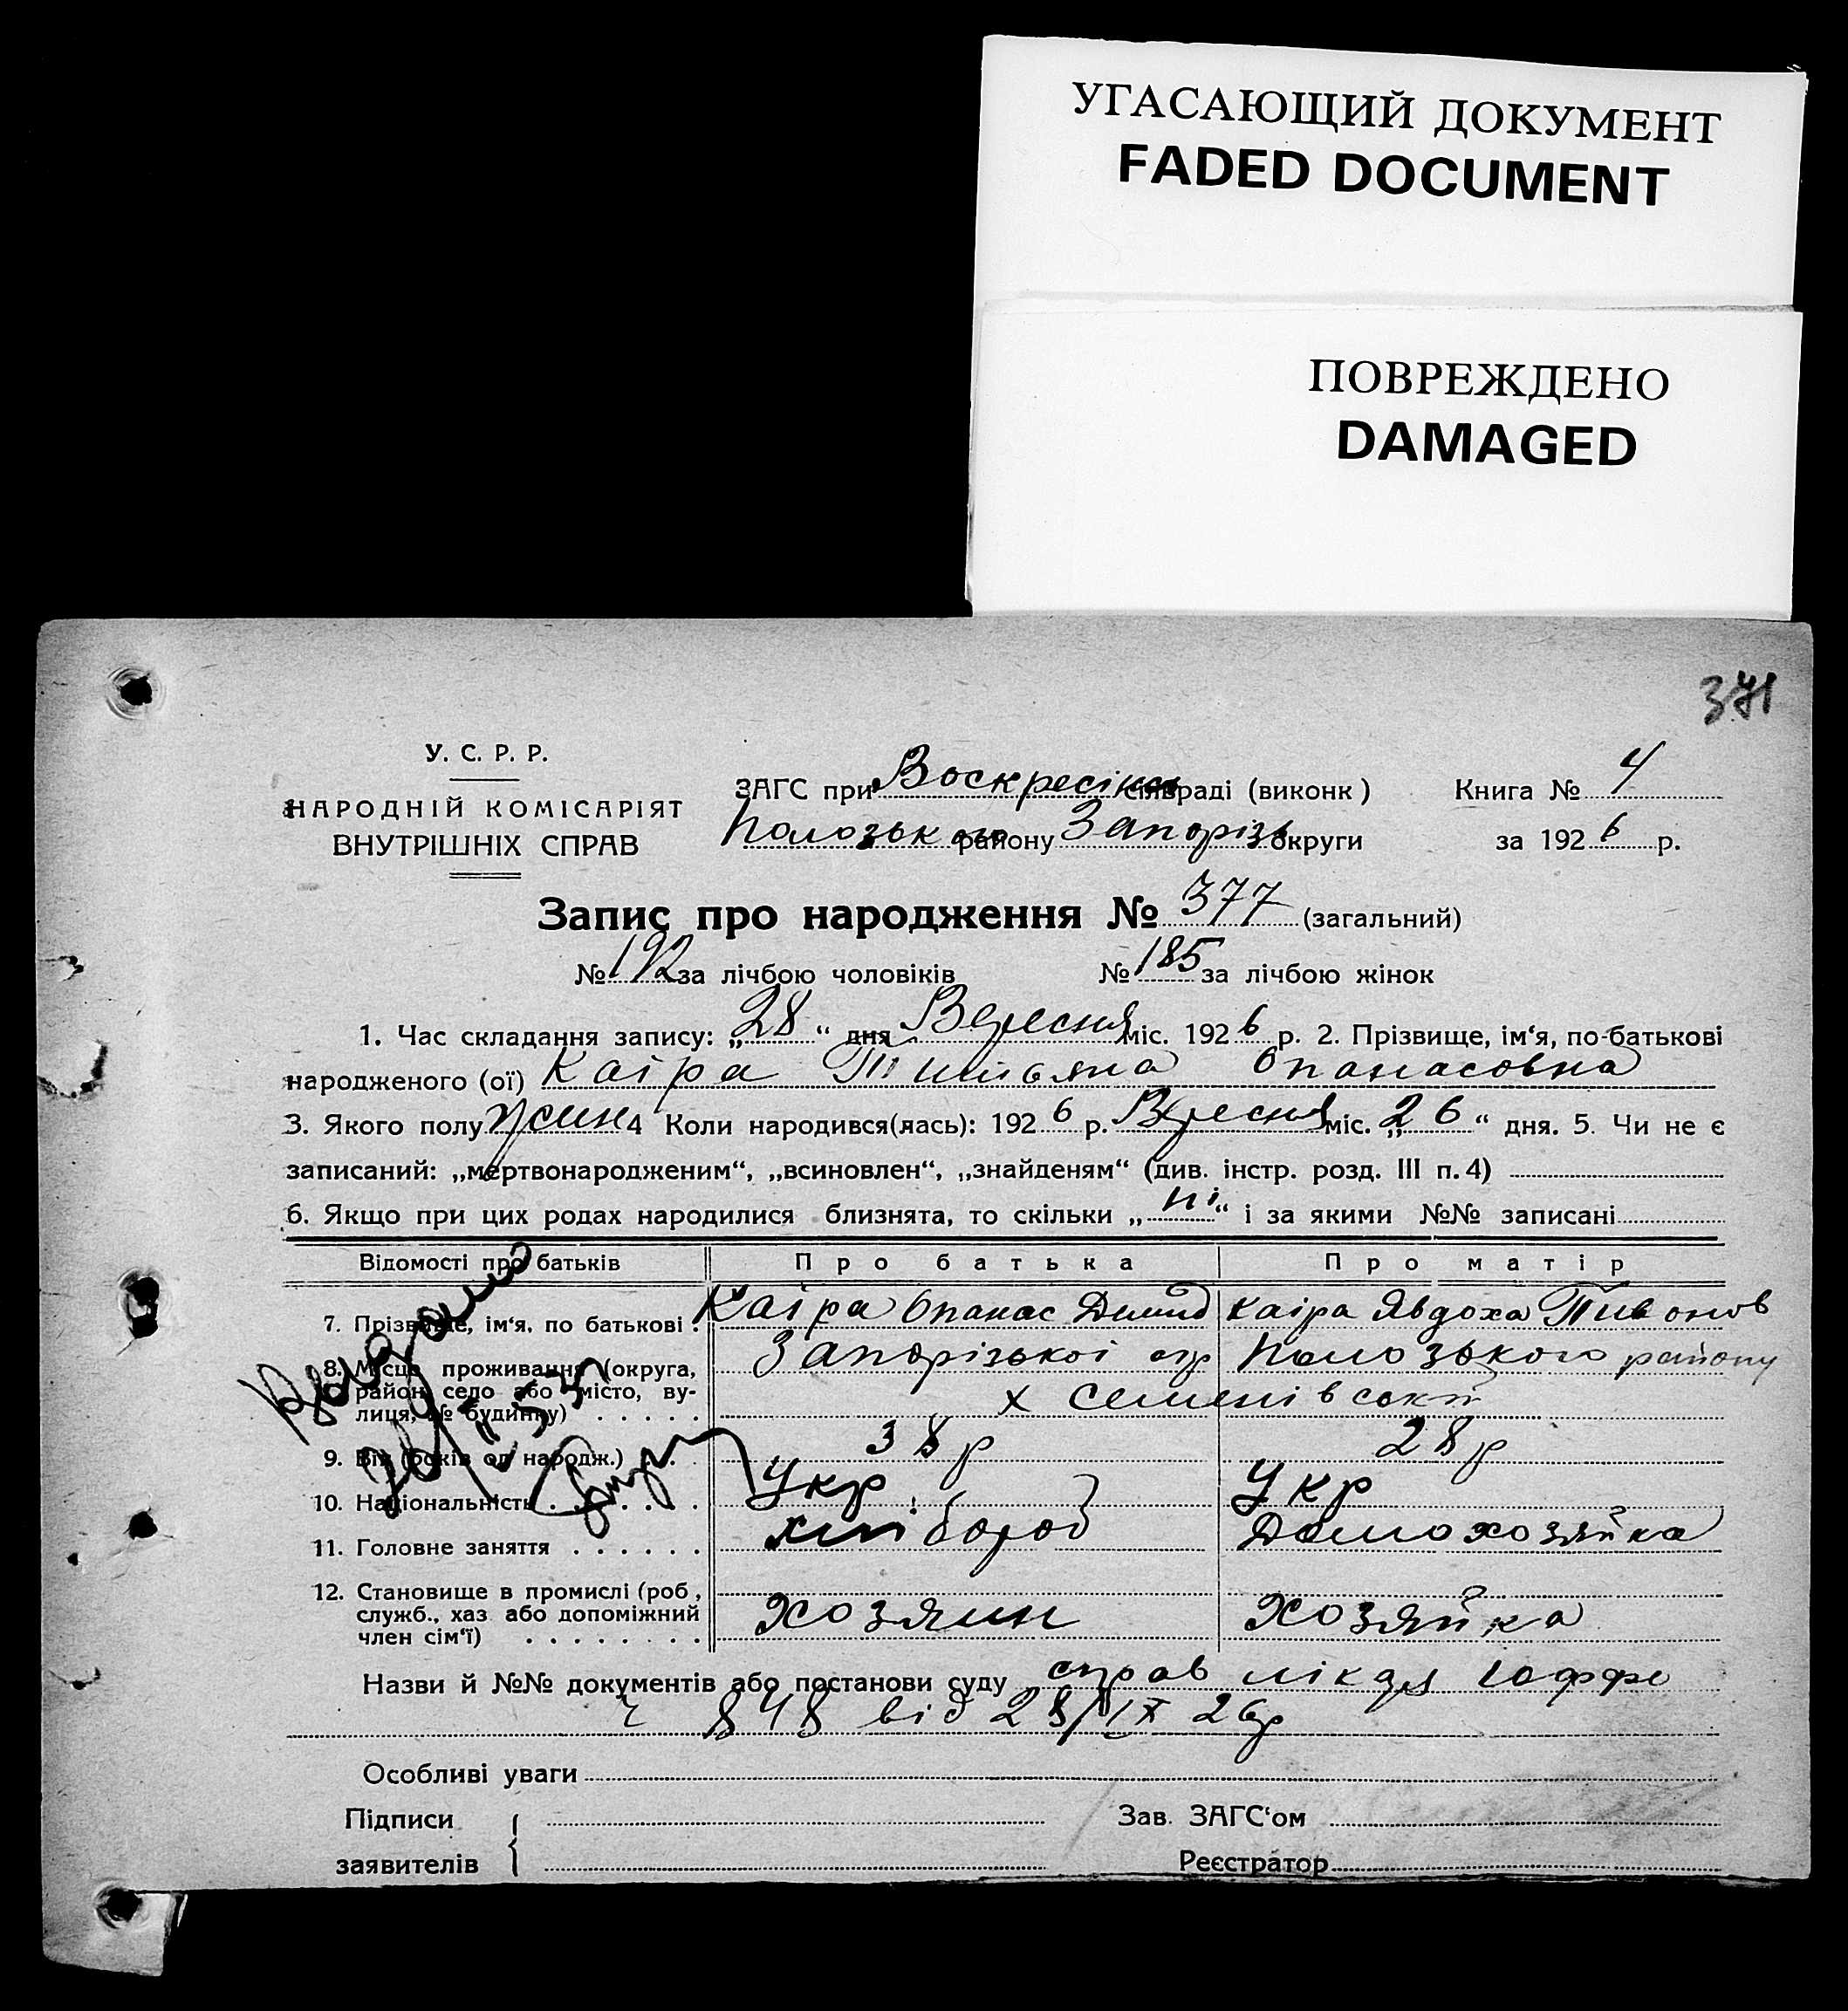 УГАСАЮЩИЙ ДОКУМЕНТ
FADED DOCUMENT
ПОВРЕЖДЕНО
DAMAGED
371
У. С. Р. Р.
НАРОДНІЙ КОМІСАРІЯТ
ВНУТРІШНІХ СПРАВ
ЗАГС при Воскресінс сільраді (виконк) Книга № 4
Полозького району Запоріз округи за 1926 р.
Запис про народження № 377 (загальний)
№ 192 за лічбою чоловіків № 185 за лічбою жінок
1. Час складання запису: „28“ дня Вересня міс. 1926 р. 2. Прізвище, ім‘я, по-батькові
народженого (ої) Каіра Опанасовна
3. Якого полу жин 4 Коли народився(лась): 1926 р. Вересня міс. „26“ дня. 5. Чи не є
записаний: „мертвонародженим“, „всиновлен“, „знайденям“ (див. інстр. розд. III п. 4)
6. Якщо при цих родах народилися близнята, то скільки „ні“ і за якими №№ записані
Відомості про батьків Про батька Про матір
7. Прізвище, ім‘я, по батькові. Каіра Опанас Демид Каіра Явдоха Пивонов
8. Місце проживання (округа, район, село або місто, ву-
лиця, № будинку) Запорізької окр Полозького району
х Семенівський
9. Вік (років од народж.) 38 р 28 р
10. Національність Укр Укр
11. Головне заняття хлібороб Домохозяйка
12. Становище в промислі (роб,
служб., хаз або допоміжний
член сім‘ї) хозяин хозяйка
Назви й №№ документів або постанови суду справ лікаря Іоффе
ч 848 від 28/IX 26р
Особливі уваги
Підписи
заявителів
Зав. ЗАГС‘ом
Реєстратор